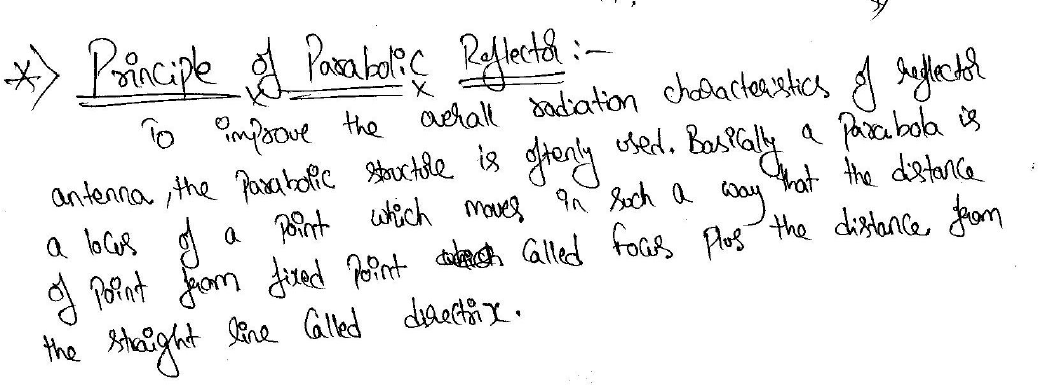 *) Principle of Parabolic Reflector :-
To improve the overall radiation characteristics of reflector
antenna, the Parabolic structure is oftenly used. Basically a Parabola is
a locus of a Point which moves in such a way that the distance
of Point from fixed Point called focus plus the distance from
the straight line called directrix.